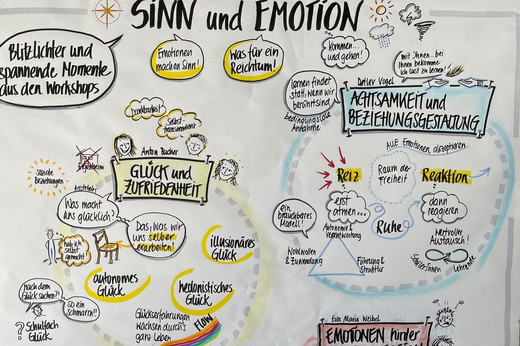 SINN und EMOTION
Blitzlichter und
spannende Momente
aus den Workshops
Emotionen
machen Sinn!
Was für ein
Reichtum!
Kommen...
und gehen!
"mit Ihnen... bei
Ihnen bekomme
ich Lust zu lernen!"
lernen findet
statt, wenn wir
berührt sind
bedingungslose
Annahme
Detlev Vogel
ACHTSAMKEIT und
BEZIEHUNGSGESTALTUNG
ALLE Emotionen akzeptieren
Reiz
Raum der
Freiheit
Reaktion
erst
atmen...
dann
reagieren
Ruhe
ein
brauchbares
Modell!
Autonomie &
Verantwortung
Wohlwollen
& Zumutung
Führung &
Struktur
Wertvoller
Austausch!
Lehrende
Dankbarkeit!
Selbst-
transzendenz?
Anton Bucher
GLÜCK und
ZUFRIEDENHEIT
Soziale
Beziehungen
Was macht
uns glücklich?
Das, was wir
uns selber
erarbeiten!
hab ich
selbst
gemacht!
illusionäres
Glück
autonomes
Glück
hedonistisches
Glück
nach dem
Glück suchen?
so ein
Schmarrn!!
? Schulfach
Glück
Glückserfahrungen
wachsen durch's
ganz Leben
FLOW
Eva Maria Waibel
EMOTIONEN hinter